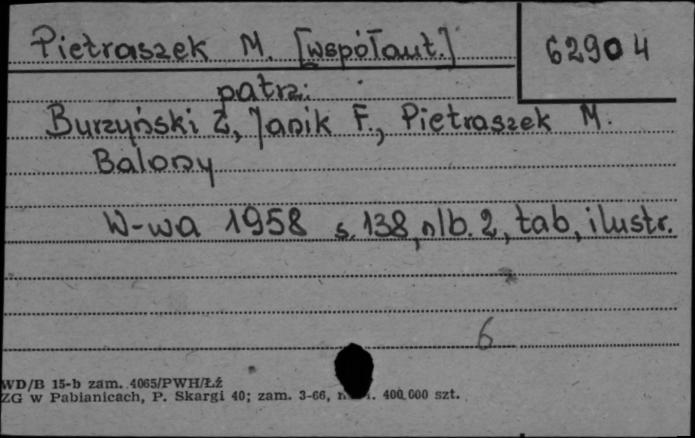 Pietraszek M. [współaut.]
62904
patrz:
Burzyński Z., Janik F., Pietraszek M.
Balony
W-wa 1958 s. 138, nlb. 2, tab, ilustr.
6
WD/B 15-b zam. 4065/PWH/Łź
ZG w Pabianicach, P. Skargi 40; zam. 3-66, 400.000 szt.